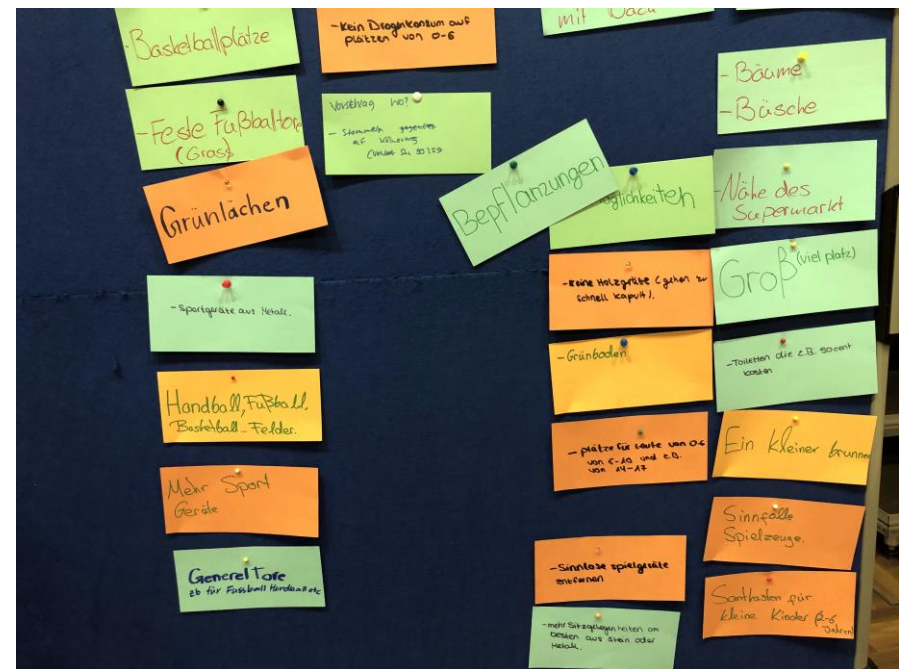 -Basketballplätze
-Feste Fußballtore
(Gras)
Grünlächen
-Sportgeräte aus Metall.
Handball, Fußball,
Basketball-Felder.
Mehr Sport
Geräte
Generel Tore
zb für Fussball Handball etc
-Kein Drogenkonsum auf
plätzen von 0-6
Vorschlag wo?
mit
Bepflanzungen
-Keine Holzgräte (gehen zu
schnell kaputt).
-Grünboden
-plätze für Leute von 0-6
von 6-10 und z.B.
von 14-17
-Sinnlose spielgeräte
entfernen
-mehr Sitzgelegenheiten am
besten aus Stein oder
Metall.
-Bäume
-Büsche
-Nähe des
Supermarkt
Groß (viel platz)
-Toiletten die z.B. 50cent
kosten
Ein kleiner brunnen
Sinnfolle
Spielzeuge.
Santkasten für
kleine Kinder (2-6
Jahren)